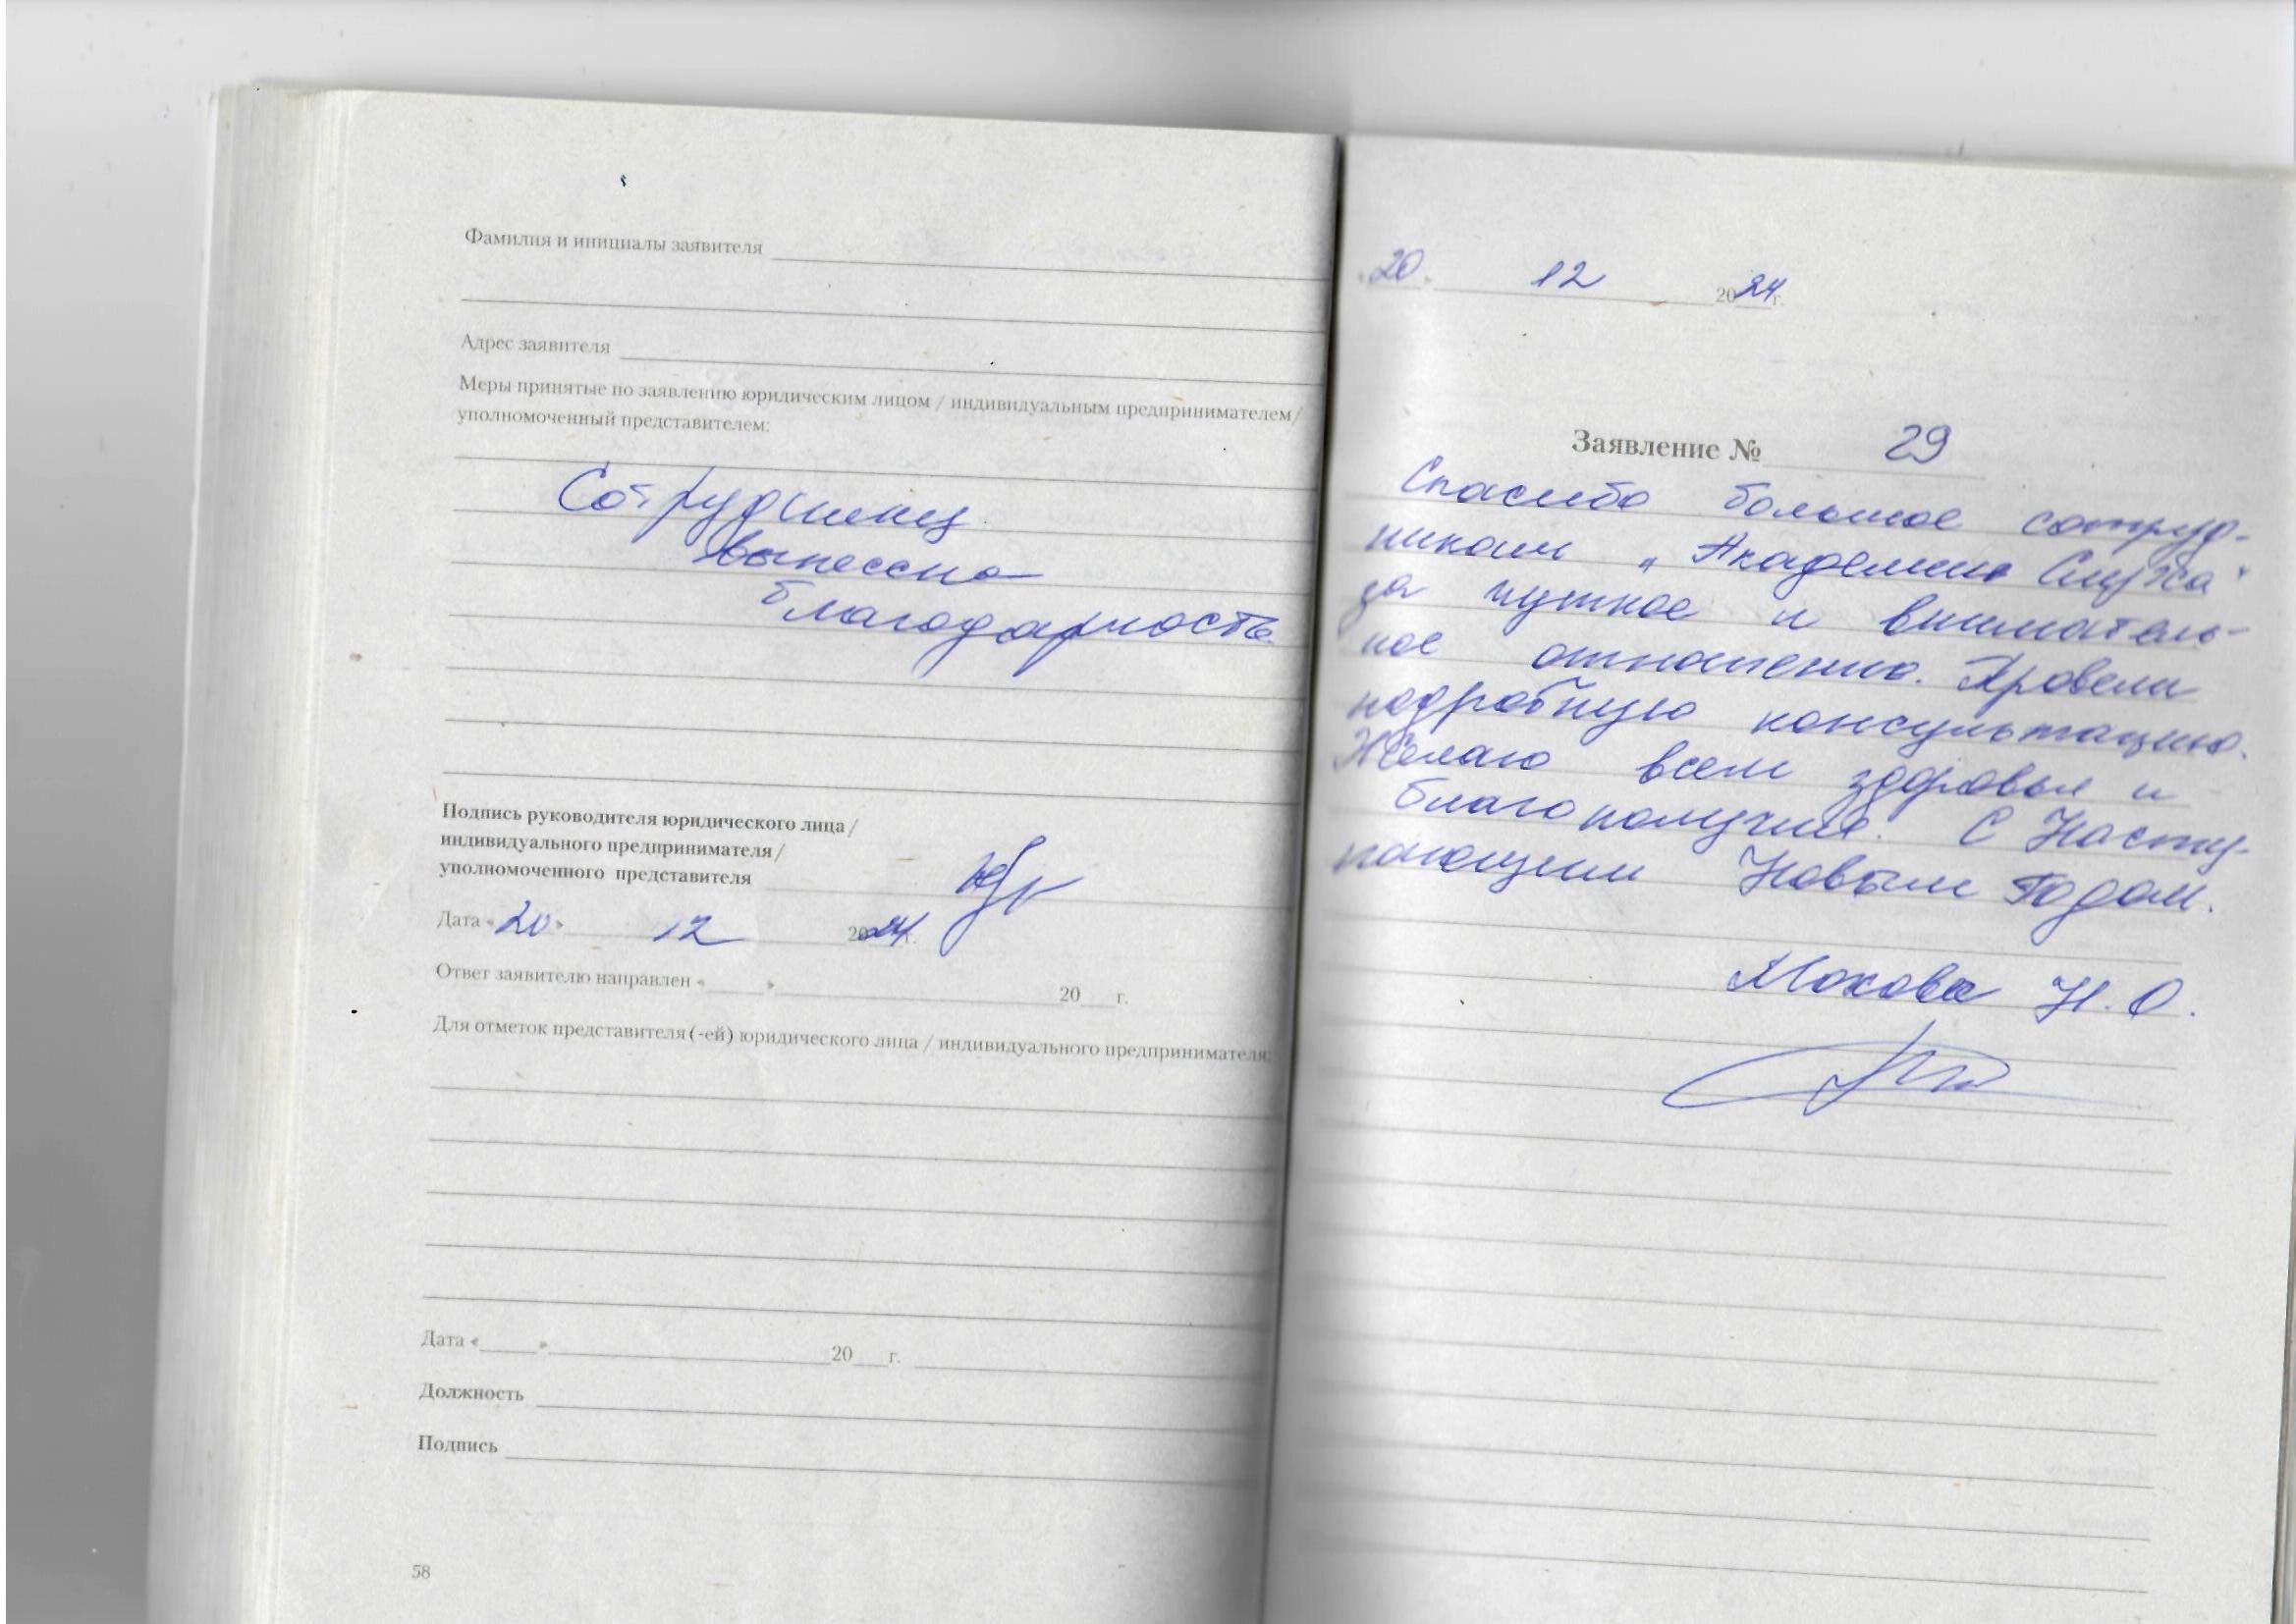 Фамилия и инициалы заявителя
Адрес заявителя
Меры принятые по заявлению юридическим лицом / индивидуальным предпринимателем/
уполномоченный представителем:
Сотруднику
вынесена
благодарность
Подпись руководителя юридического лица/
индивидуального предпринимателя/
уполномоченного представителя
Дата «20» 12 2024г.
Ответ заявителю направлен « » 20 г.
Для отметок представителя(-ей) юридического лица / индивидуального предпринимателя
Дата « » 20 г.
Должность
Подпись
58
20. 12 2024г.
Заявление № 29
Спасибо большое сотруд-
никам „Академии Слуха“
за чуткое и вниматель-
ное отношение. Провели
подробную консультацию.
Желаю всем здоровья и
благополучия. С Насту-
пающим Новым Годом.
Мохова Н.О.